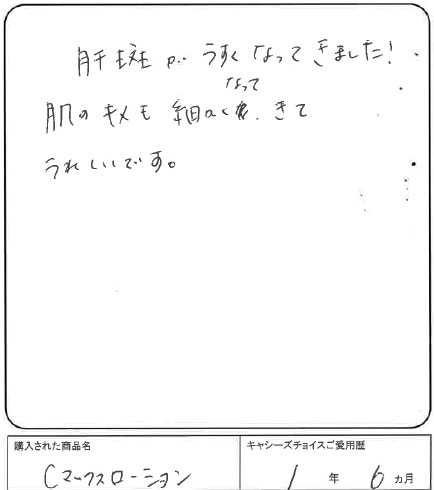 肝斑が うすくなってきました!
なって
肌のキメも 細かく きて
うれしいです。
購入された商品名
キャシーズチョイスご愛用歴
Cマックスローション
1 年 6 カ月